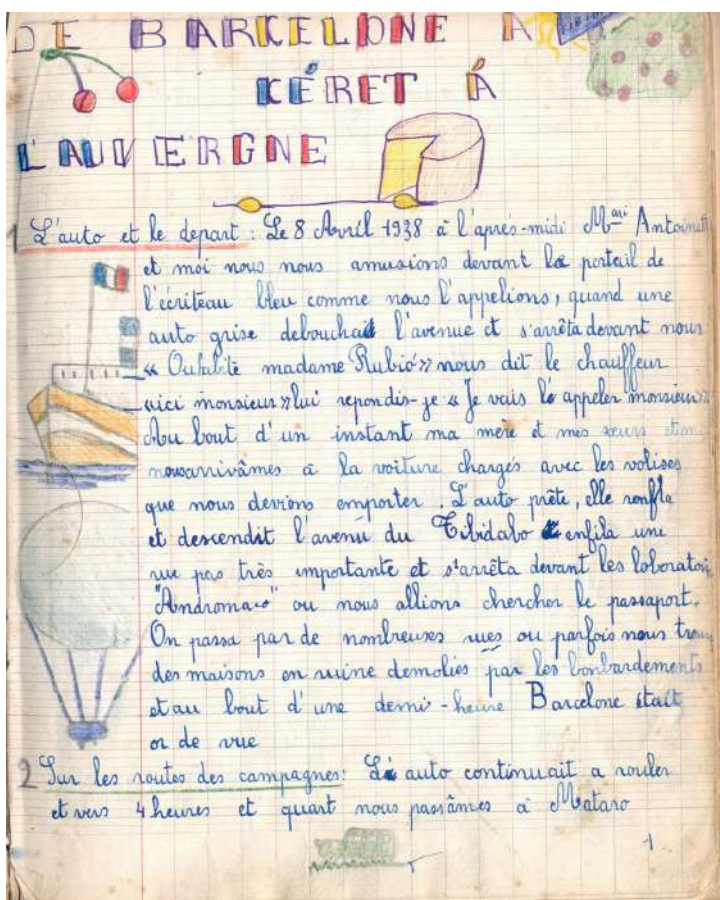 DE BARCELONE A
KÉRET Á
L'AUVERGNE
1 L'auto et le depart : Le 8 Avril 1938 à l'aprés-midi M<sup>ari</sup> Antoinett
et moi nous nous amusions devant le portail de
l'écriteau bleu comme nous l'appelions, quand une
auto grise debouchait l'avenue et s'arrêta devant nous
madame Rubió» nous dit le chauffeur
«ici monsieur» lui repondis-je «Je vais l'appeler monsieur»
Au bout d'un instant ma mère et mes sœurs
nous arrivâmes à la voiture chargés avec les valises
que nous devions emporter. L'auto prête, elle ronfla
et descendit l'avenu du Tibidabo enfila une
rue pas très importante et s'arrêta devant les laboratoi
"Andromaco" ou nous allions chercher le passaport.
On passa par de nombreuses rues ou parfois nous trou
des maisons en ruine demolies par les bonbardements
et au bout d'une demi-heure Barcelone était
or de vue
2 Sur les routes des campagnes: L'auto continuait a rouler
et vers 4 heures et quart nous passâmes à Mataro
1